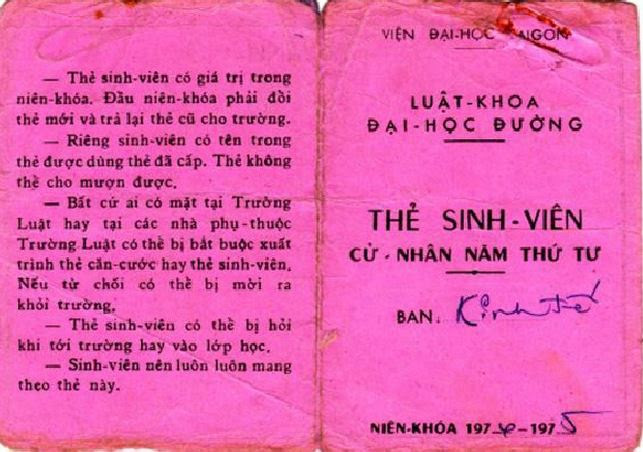 — Thẻ sinh-viên có giá trị trong
niên-khóa. Đầu niên-khóa phải đổi
thẻ mới và trả lại thẻ cũ cho trường.
— Riêng sinh-viên có tên trong
thẻ được dùng thẻ đã cấp. Thẻ không
thể cho mượn được.
— Bất cứ ai có mặt tại Trường
Luật hay tại các nhà phụ-thuộc
Trường Luật có thể bị bắt buộc xuất
trình thẻ căn-cước hay thẻ sinh-viên.
Nếu từ chối có thể bị mời ra
khỏi trường.
— Thẻ sinh-viên có thể bị hỏi
khi tới trường hay vào lớp học.
— Sinh-viên nên luôn luôn mang
theo thẻ này.
VIỆN ĐẠI-HỌC SAIGON
LUẬT-KHOA
ĐẠI-HỌC ĐƯỜNG
THẺ SINH-VIÊN
CỬ-NHÂN NĂM THỨ TƯ
BAN: Kinh tế
NIÊN-KHÓA 1974-1975